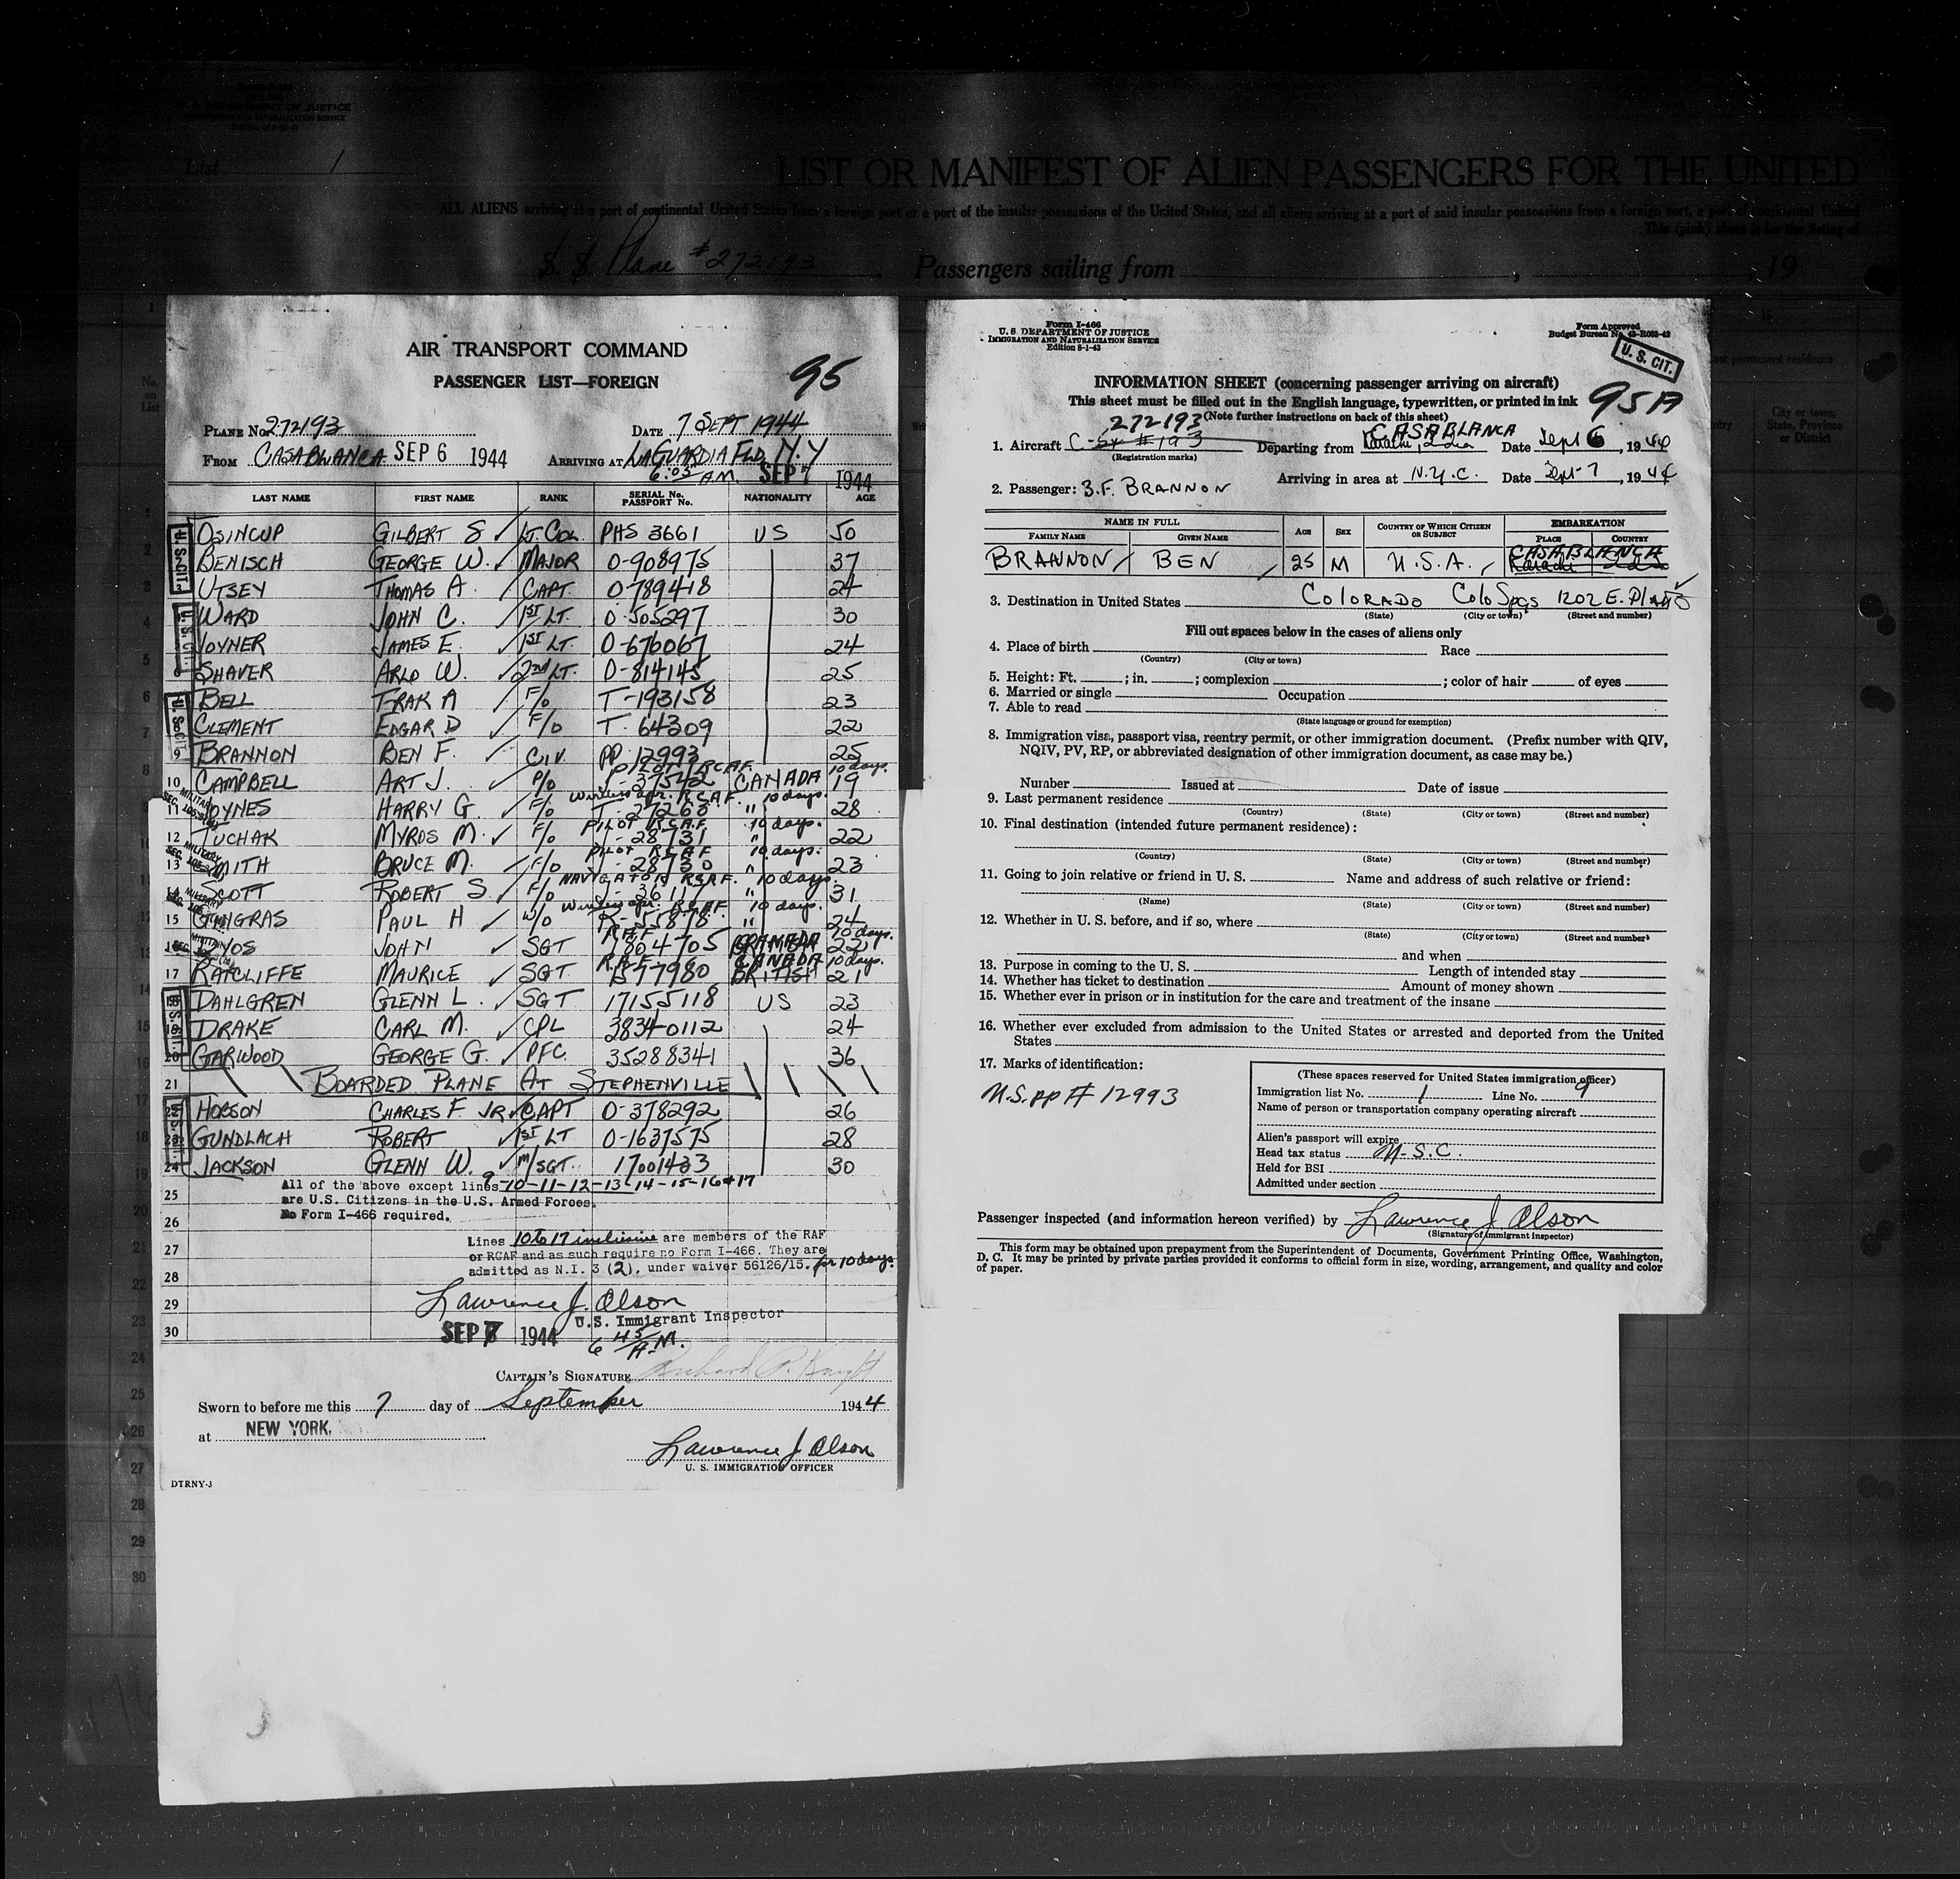 U. S. DEPARTMENT OF JUSTICE
IMMIGRATION AND NATURALIZATION SERVICE
List 1
LIST OR MANIFEST OF ALIEN PASSENGERS FOR THE UNITED
ALL ALIENS arriving at a port of continental United States from a foreign port or a port of the insular possessions of the United States, and all aliens arriving at a port of said insular possessions from a foreign port, a port of continental United
This (pink) sheet is for the listing of
S. S. Plane #272193 Passengers sailing from , 19
AIR TRANSPORT COMMAND
PASSENGER LIST—FOREIGN
95
PLANE No. 272193 DATE 7 SEPT 1944
FROM CASABLANCA SEP 6 1944 ARRIVING AT LAGUARDIA FLD, N.Y
6:05 A.M. SEP 7 1944
LAST NAME FIRST NAME RANK SERIAL No. PASSPORT No. NATIONALITY AGE
OSINCUP GILBERT S LT. COL. PHS 3661 US 50
BENISCH GEORGE W. MAJOR O-908975 37
UTSEY THOMAS A. CAPT. O-789418 24
WARD JOHN C. 1ST LT. O-505297 30
JOYNER JAMES E. 1ST LT. O-676067 24
SHAVER ARLO W. 2ND LT. O-814145 25
BELL FRAK A F/O T-193158 23
CLEMENT EDGAR D F/O T-64309 22
9 BRANNON BEN F. CIV. PP 12993 25
PILOT RCAF. 10 days.
10 CAMPBELL ART J. P/O J-37542 CANADA 19
Wireless opr. RCAF. 10 days.
11 HOYNES HARRY G. F/O J-27268 " 28
PILOT RCAF 10 days.
12 TUCHAK MYROS M. F/O J-28731 " 22
PILOT RCAF 10 days.
13 SMITH BRUCE M. F/O J-28730 " 23
NAVIGATOR RCAF. 10 days.
14 SCOTT ROBERT S. F/O J-36117 " 31
Wireless opr. RCAF 10 days.
15 GINGRAS PAUL H W/O R-55878 " 24
RAF 10 days.
JOHN SGT 1804705 CANADA 22
R.A.F. CANADA 10 days.
17 RATCLIFFE MAURICE SGT. 1577980 BRITISH 21
DAHLGREN GLENN L. SGT 17155118 US 23
DRAKE CARL M. CPL 38340112 24
20 GARWOOD GEORGE G. PFC. 35288341 36
21 BOARDED PLANE AT STEPHENVILLE
HOBSON CHARLES F JR. CAPT O-378292 26
GUNDLACH ROBERT 1ST LT O-1637575 28
24 JACKSON GLENN W. M/SGT. 17001433 30
All of the above except lines 9-10-11-12-13-14-15-16+17
25 are U.S. Citizens in the U.S. Armed Forces.
No Form I-466 required.
26
Lines 10 to 17 inclusive are members of the RAF
27 or RCAF and as such require no Form I-466. They are
admitted as N.I. 3 (2), under waiver 56126/15. for 10 days.
28
29 Lawrence J. Olson
U.S. Immigrant Inspector
30 SEP 7 1944 6 45 A.M.
CAPTAIN'S SIGNATURE Richard P. Knight
Sworn to before me this 7 day of September 1944
at NEW YORK.
Lawrence J Olson
U. S. IMMIGRATION OFFICER
DTRNY-3
Form I-466
U. S. DEPARTMENT OF JUSTICE
IMMIGRATION AND NATURALIZATION SERVICE
Edition 8-1-43
Form Approved
Budget Bureau No. 43-R083-42
U. S. CIT.
INFORMATION SHEET (concerning passenger arriving on aircraft)
This sheet must be filled out in the English language, typewritten, or printed in ink
95A
(Note further instructions on back of this sheet)
272193 CASABLANCA
1. Aircraft C-54 #193 Departing from Karachi, India Date Sept 6, 1944
(Registration marks)
Arriving in area at N.Y.C. Date Sept-7, 1944
2. Passenger: B.F. BRANNON
NAME IN FULL AGE SEX COUNTRY OF WHICH CITIZEN OR SUBJECT EMBARKATION
FAMILY NAME GIVEN NAME PLACE COUNTRY
CASABLANCA
BRANNON BEN 25 M U.S.A. Karachi India
3. Destination in United States COLORADO Colo Spgs 1202 E. Platte
(State) (City or town) (Street and number)
Fill out spaces below in the cases of aliens only
4. Place of birth Race
(Country) (City or town)
5. Height: Ft. ; in. ; complexion ; color of hair of eyes
6. Married or single Occupation
7. Able to read
(State language or ground for exemption)
8. Immigration visa, passport visa, reentry permit, or other immigration document. (Prefix number with QIV,
NQIV, PV, RP, or abbreviated designation of other immigration document, as case may be.)
Number Issued at Date of issue
9. Last permanent residence
(Country) (City or town) (State) (Street and number)
10. Final destination (intended future permanent residence):
(Country) (State) (City or town) (Street and number)
11. Going to join relative or friend in U. S. Name and address of such relative or friend:
(Name) (State) (City or town) (Street and number)
12. Whether in U. S. before, and if so, where
(State) (City or town) (Street and number)
and when
13. Purpose in coming to the U. S. Length of intended stay
14. Whether has ticket to destination Amount of money shown
15. Whether ever in prison or in institution for the care and treatment of the insane
16. Whether ever excluded from admission to the United States or arrested and deported from the United
States
17. Marks of identification:
U.S. pp # 12993
(These spaces reserved for United States immigration officer)
Immigration list No. 1 Line No. 9
Name of person or transportation company operating aircraft
Alien's passport will expire
Head tax status U.S.C.
Held for BSI
Admitted under section
Passenger inspected (and information hereon verified) by Lawrence J Olson
(Signature of immigrant inspector)
This form may be obtained upon prepayment from the Superintendent of Documents, Government Printing Office, Washington,
D. C. It may be printed by private parties provided it conforms to official form in size, wording, arrangement, and quality and color
of paper.